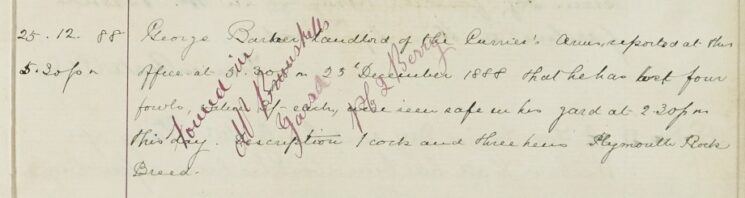 25.12.88 George Barker Landlord of the Currier's Arms, reported at this
5.30pm Office at 5.30pm 25th December 1888 that he has lost four
fowls, value 3/- each, were seen safe in his yard at 2.30pm
this day. Description 1 cock and three hens Plymouth Rock
Breed.
Found in
Mr
Yard
PC Berry